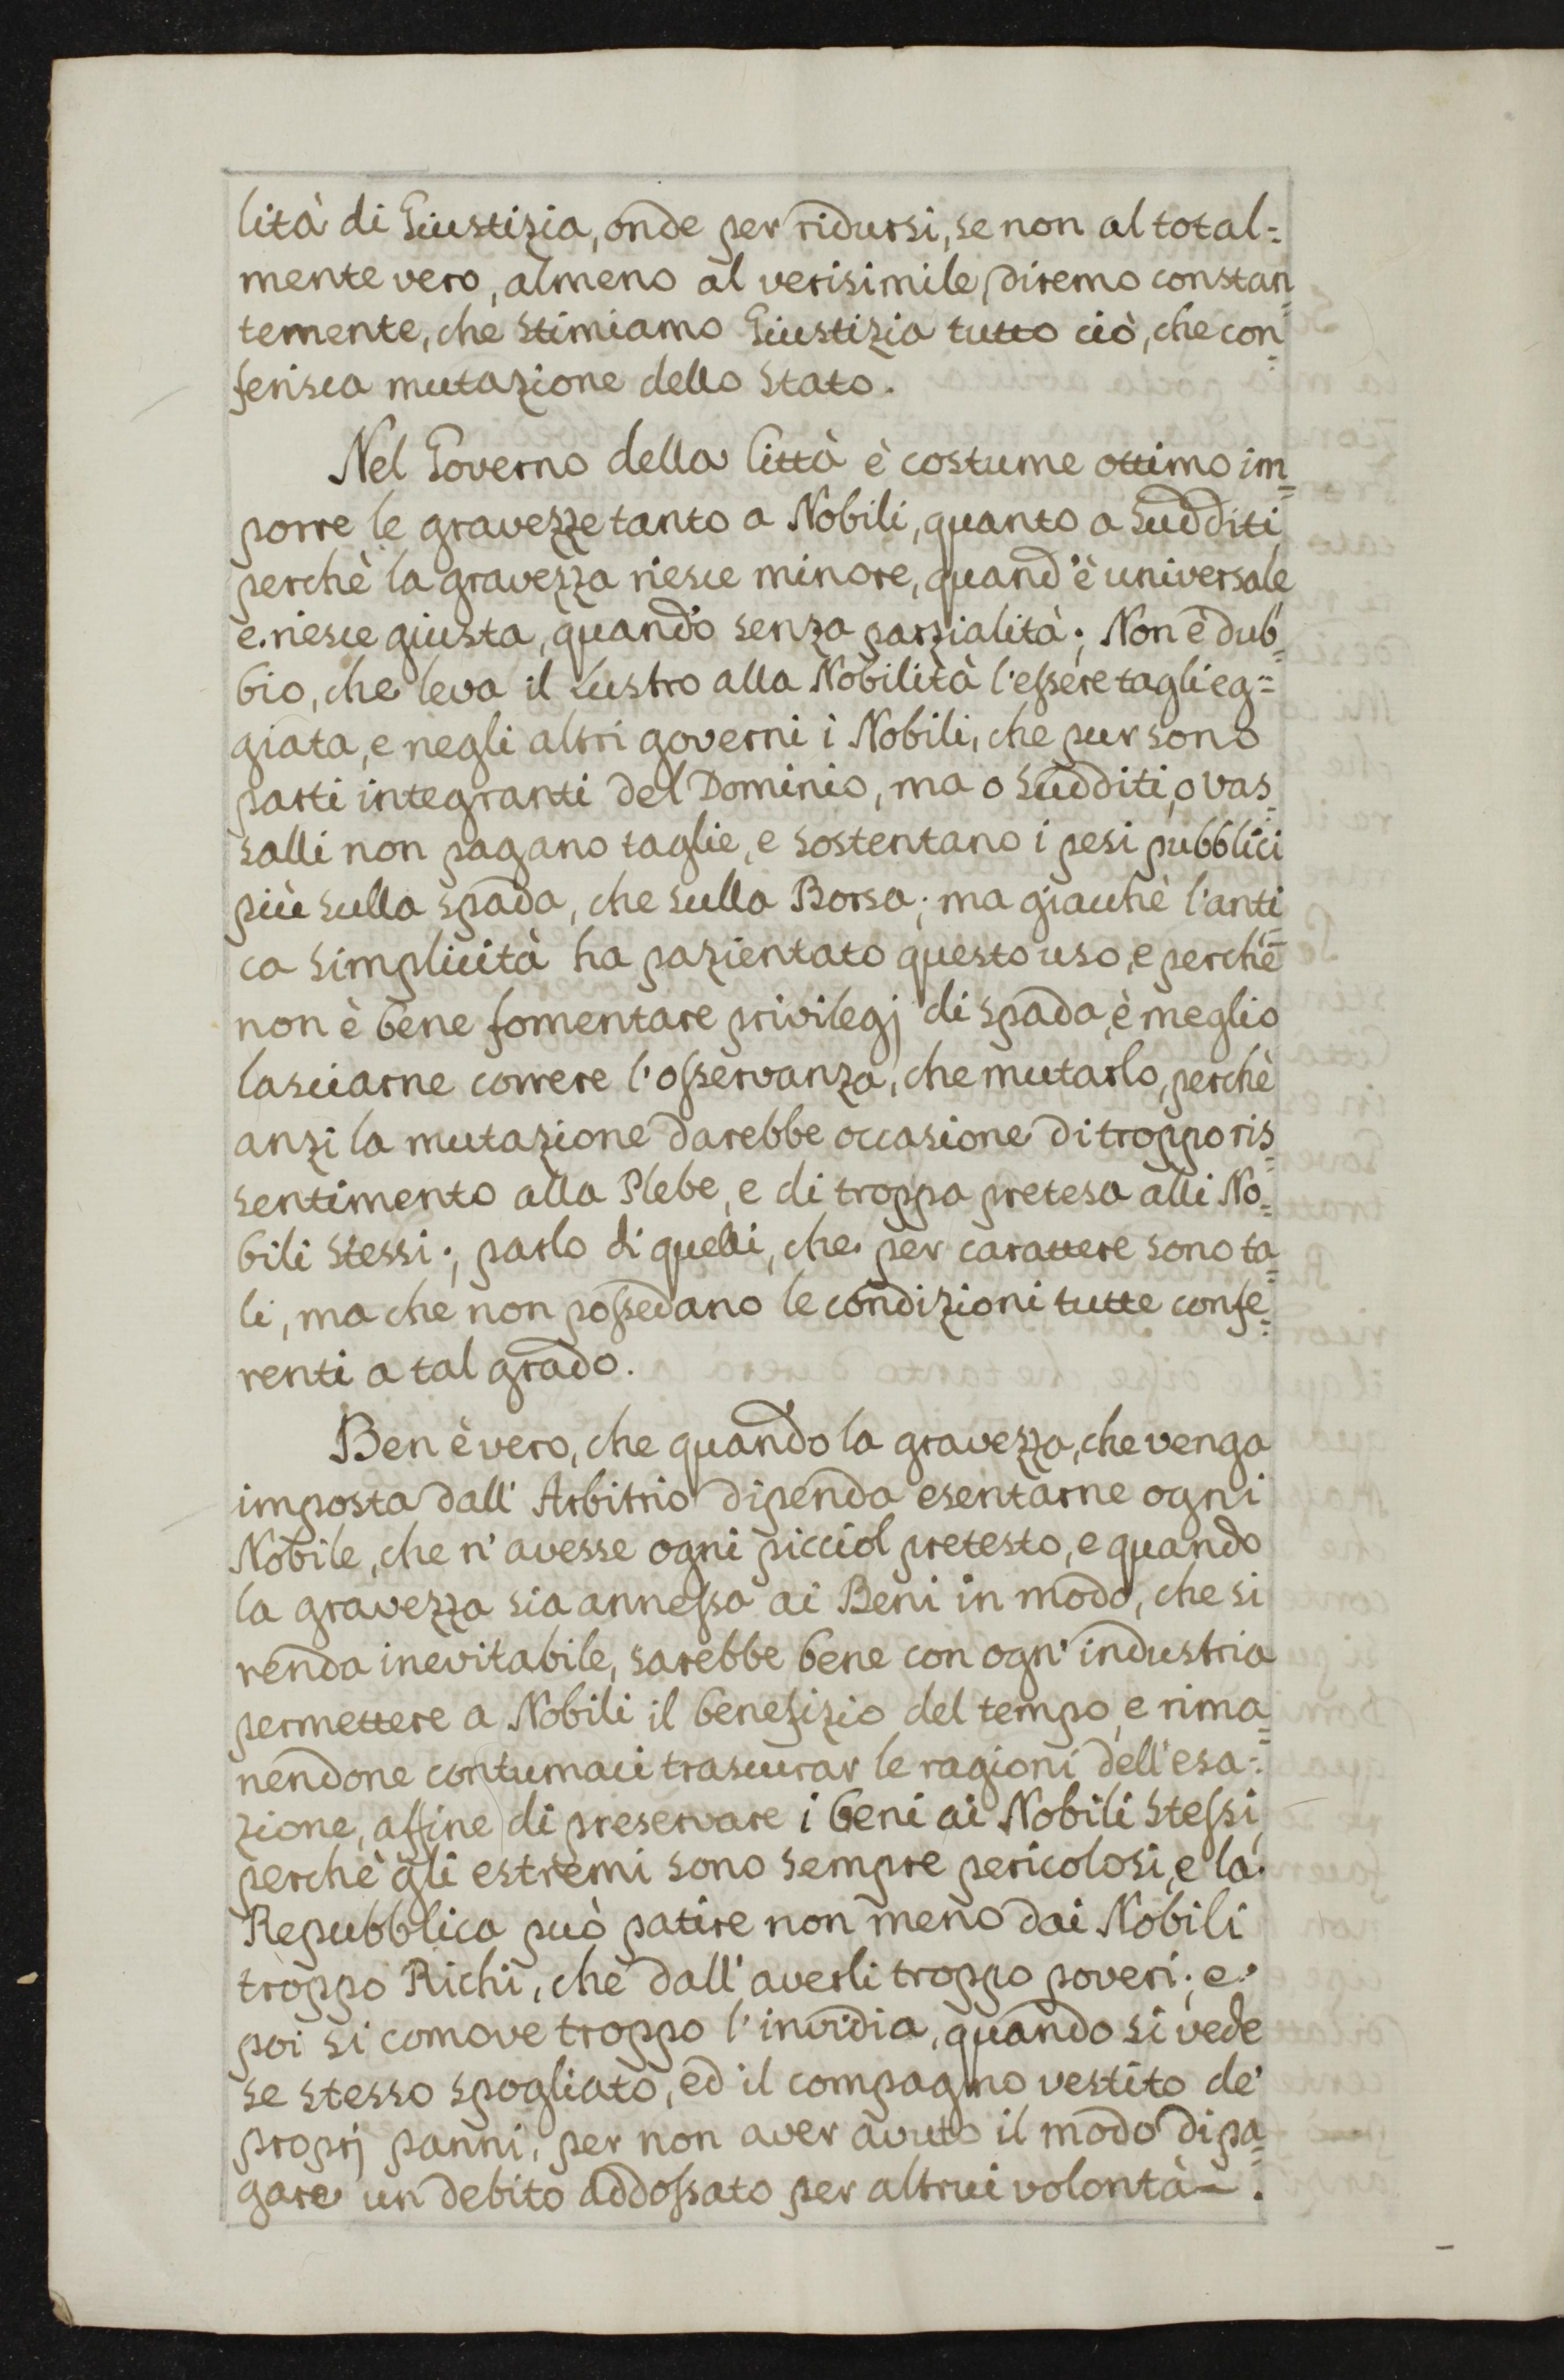 lità di Giustizia, onde per ridursi, se non al total=
mente vero, almeno al verisimile, diremo constan=
temente, che stimiamo Giustizia tutto ciò, che con=
ferisca mutazione dello Stato.
Nel Governo della Città è costume ottimo im=
porre le gravezze tanto a Nobili, quanto a Sudditi,
perchè la gravezza riesce minore, quand'è universale
e riesce giusta, quand'è senza parzialità; Non è dub=
bio, che leva il Lustro alla Nobilità l'eſsere taglieg=
giata, e negli altri governi i Nobili, che pur sono
parti integranti del Dominio, ma o Sudditi, o vas=
salli non pagano taglie, e sostentano i pesi pubblici
più sulla spada, che sulla Borsa; ma giacchè l'anti=
ca simplicità ha pazientato questo uso, e perchè
non è bene fomentare privilegj di spada, è meglio
lasciarne correre l'oſservanza, che mutarlo, perchè
anzi la mutazione darebbe occasione di troppo ris=
sentimento alla Plebe, e di troppa pretesa alli No=
bili stessi; parlo di quelli, che per carattere sono ta=
li, ma che non poſsedano le condizioni tutte confe=
renti a tal grado.
Ben è vero, che quando la gravezza, che venga
imposta dall' Arbitrio dipenda esentarne ogni
Nobile, che n' avesse ogni picciol pretesto, e quando
la gravezza sia anneſsa ai Beni in modo, che si
renda inevitabile, sarebbe bene con ogn' industria
permettere a Nobili il benefizio del tempo, e rima=
nendone contumaci trascurar le ragioni dell'esa=
zione, affine di preservare i beni ai Nobili Steſsi,
perchè gli estremi sono sempre pericolosi, e la
Repubblica può patire non meno dai Nobili
troppo Richi, che dall' averli troppo poveri; e
poi si comove troppo l'invidia, quando si vede
se stesso spogliato, ed il compagno vestito de'
proprj panni, per non aver avuto il modo di pa=
gare un debito addoſsato per altrui volontà.